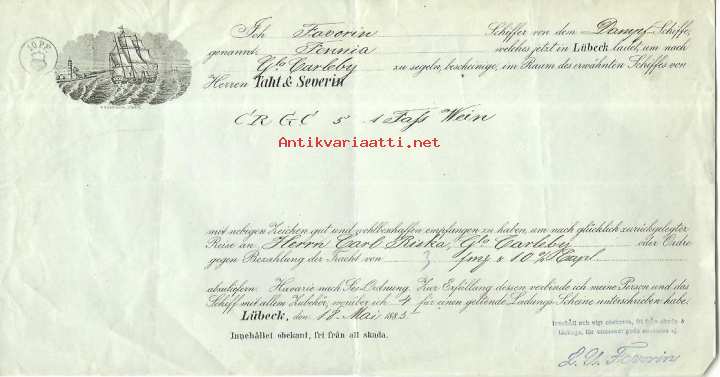 10 PF
Ich Favorin Schiffer von dem Dampf-Schiffe,
genannt Fennia welches jetzt in Lübeck ladet, um nach
Gla Carleby zu segeln, bescheinige, im Raum des erwähnten Schiffes von
Herren Taht & Severin
CR GC 5 1 Fass Wein
Antikvariaatti.net
mit nebigen Zeichen gut und wohlbehalten empfangen zu haben, um nach glücklich zurückgelegter
Reise an Herrn Carl Riska, Gla Carleby oder Ordre
gegen Bezahlung der Fracht von 3 fmg & 10 %
abzuliefern. Havarie nach See-Ordnung. Zur Erfüllung dessen, verbinde ich meine Person und das
Schiff mit allem Zubehör, worüber ich 4 für einen geltende Ladungs-Scheine unterschrieben habe.
Lübeck, den 18 Mai 1885
Innehållet obekant, fri från all skada.
Innehåll och vigt obekanta, fri från skada &
läckage, för
L. U. Favorin